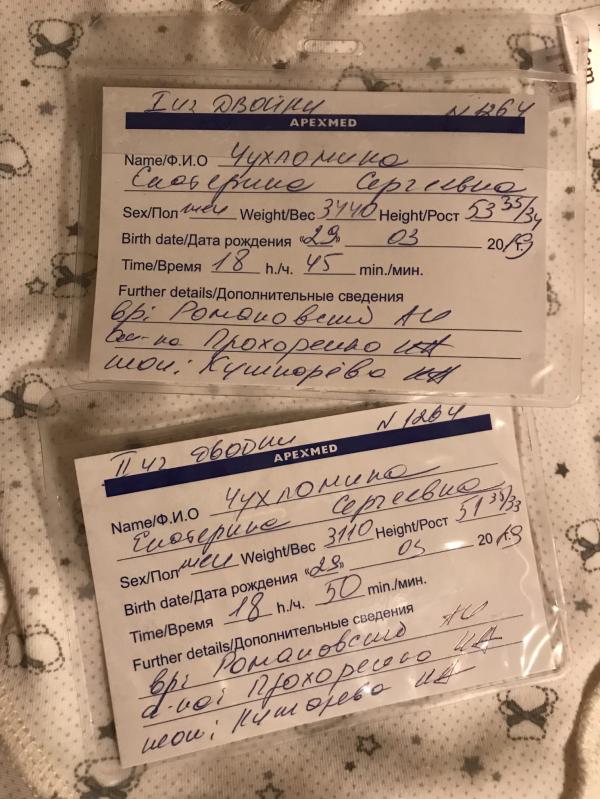 I из ДВОЙНИ N 1264
APEXMED
Name/Ф.И.О Чухломина
Екатерина Сергеевна
Sex/Пол жен Weight/Вес 3440 Height/Рост 53 35/34
Birth date/Дата рождения «29» 03 2019г.
Time/Время 18 h./ч. 45 min./мин.
Further details/Дополнительные сведения
вр: Романовский АИ
Прохоренко НА
Кушнарёва НА
II из двойни N 1264
APEXMED
Name/Ф.И.О Чухломина
Екатерина Сергеевна
Sex/Пол жен Weight/Вес 3110 Height/Рост 51 35/33
Birth date/Дата рождения «29» 03 2019
Time/Время 18 h./ч. 50 min./мин.
Further details/Дополнительные сведения
вр: Романовский АИ
Прохоренко НА
Кушнарева НА